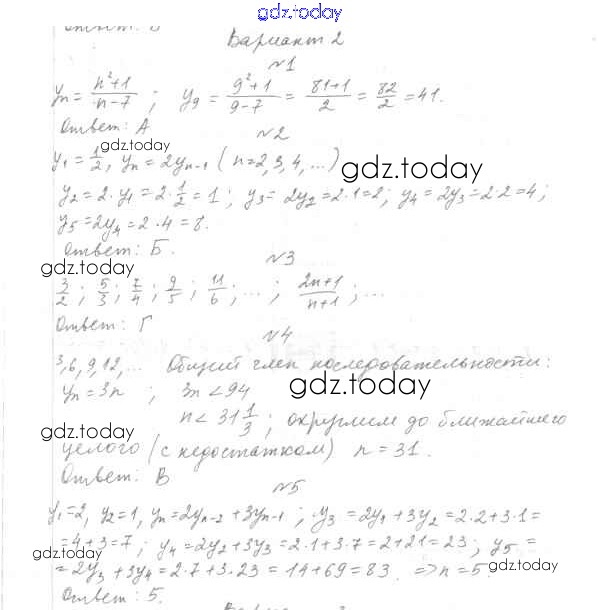 gdz.today
Ответ: В
Вариант 2
№1
yn = n²+1 / n-7 ; y9 = 9²+1 / 9-7 = 81+1 / 2 = 82 / 2 = 41.
Ответ: А
gdz.today
№2
y1 = 1/2, yn = 2yn-1 (n=2,3,4,...)
gdz.today
y2 = 2·y1 = 2·1/2 = 1; y3 = 2y2 = 2·1=2; y4 = 2y3 = 2·2=4;
y5 = 2y4 = 2·4 = 8.
Ответ: Б.
gdz.today
№3
3/2 ; 5/3 ; 7/4 ; 9/5 ; 11/6 ; ... ; 2n+1 / n+1 ; ...
Ответ: Г
№4
3,6,9,12,... Общий член последовательности:
gdz.today
yn = 3n ; 3n < 94
n < 31 1/3 ; округлим до ближайшего
gdz.today
целого (с недостатком) n = 31.
Ответ: В
№5
y1=2, y2=1, yn=2yn-2+3yn-1 ; y3 = 2y1+3y2 = 2·2+3·1=
=4+3=7; y4 = 2y2+3y3 = 2·1+3·7 = 2+21 = 23; y5 =
gdz.today
= 2y3+3y4 = 2·7+3·23 = 14+69 = 83. => n = 5.
gdz.today
Ответ: 5.